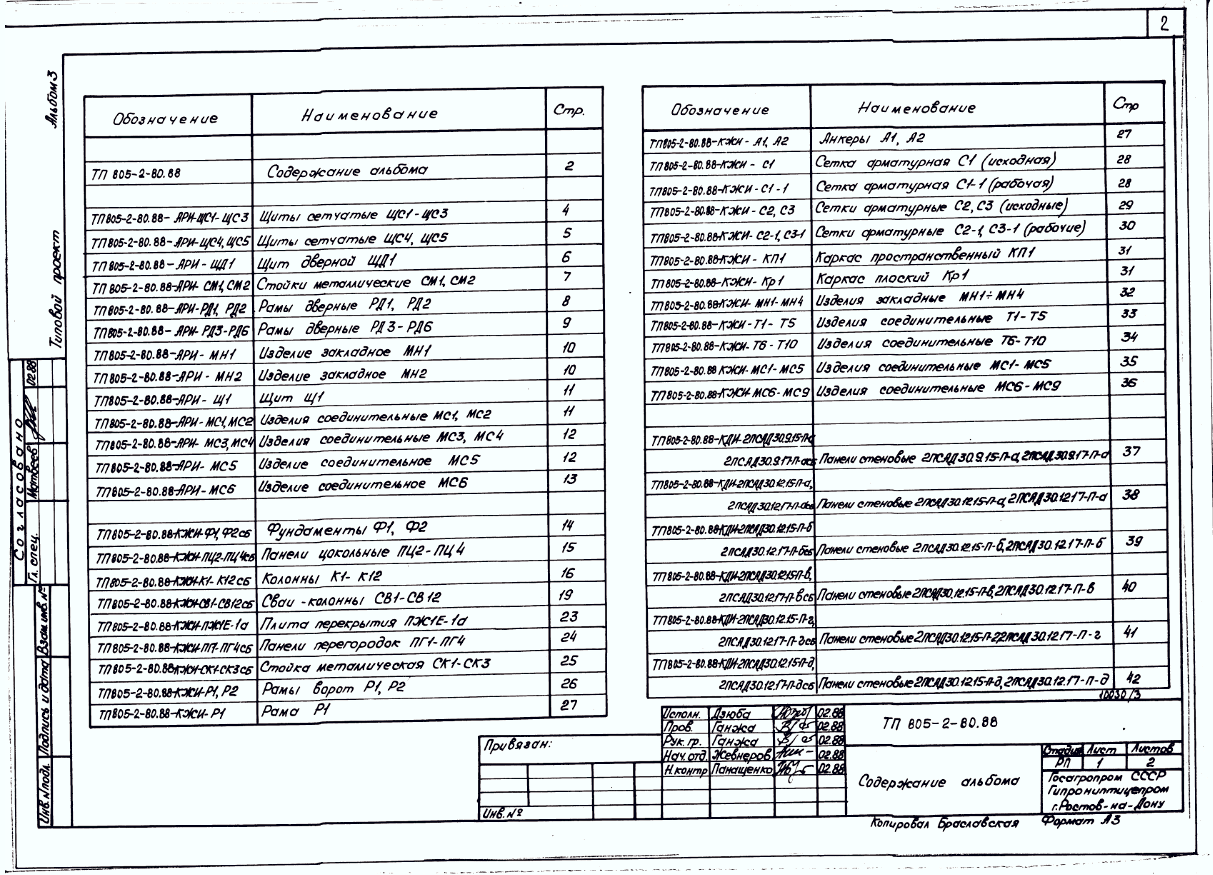 2
Альбом 3
Типовой проект
Согласовано
Гл. спец. Матвеев 02.88
Взам.инв.№
Подпись и дата
Инв.№подл.
Обозначение Наименование Стр.
ТП 805-2-80.88 Содержание альбома 2
ТП805-2-80.88-АРИ-ЩС1-ЩС3 Щиты сетчатые ЩС1-ЩС3 4
ТП805-2-80.88-АРИ-ЩС4, ЩС5 Щиты сетчатые ЩС4, ЩС5 5
ТП805-2-80.88-АРИ-ЩД1 Щит дверной ЩД1 6
ТП805-2-80.88-АРИ-СМ1, СМ2 Стойки металлические СМ1, СМ2 7
ТП805-2-80.88-АРИ-РД1, РД2 Рамы дверные РД1, РД2 8
ТП805-2-80.88-АРИ-РД3-РД6 Рамы дверные РД3-РД6 9
ТП805-2-80.88-АРИ-МН1 Изделие закладное МН1 10
ТП805-2-80.88-АРИ-МН2 Изделие закладное МН2 10
ТП805-2-80.88-АРИ-Щ1 Щит Щ1 11
ТП805-2-80.88-АРИ-МС1, МС2 Изделия соединительные МС1, МС2 11
ТП805-2-80.88-АРИ-МС3, МС4 Изделия соединительные МС3, МС4 12
ТП805-2-80.88-АРИ-МС5 Изделие соединительное МС5 12
ТП805-2-80.88-АРИ-МС6 Изделие соединительное МС6 13
ТП805-2-80.88-КЖИ-Ф1, Ф2сб Фундаменты Ф1, Ф2 14
ТП805-2-80.88-КЖИ-ПЦ2-ПЦ4сб Панели цокольные ПЦ2-ПЦ4 15
ТП805-2-80.88-КЖИ-К1-К12сб Колонны К1-К12 16
ТП805-2-80.88-КЖИ-СВ1-СВ12сб Сваи-колонны СВ1-СВ12 19
ТП805-2-80.88-КЖИ-ПЖ1Е-1а Плита перекрытия ПЖ1Е-1а 23
ТП805-2-80.88-КЖИ-ПГ1-ПГ4сб Панели перегородок ПГ1-ПГ4 24
ТП805-2-80.88-КЖИ-СК1-СК3сб Стойка металлическая СК1-СК3 25
ТП805-2-80.88-КЖИ-Р1, Р2 Рамы ворот Р1, Р2 26
ТП805-2-80.88-КЖИ-Р1 Рама Р1 27
Обозначение Наименование Стр
ТП805-2-80.88-КЖИ-А1, А2 Анкеры А1, А2 27
ТП805-2-80.88-КЖИ-С1 Сетка арматурная С1 (исходная) 28
ТП805-2-80.88-КЖИ-С1-1 Сетка арматурная С1-1 (рабочая) 28
ТП805-2-80.88-КЖИ-С2, С3 Сетки арматурные С2, С3 (исходные) 29
ТП805-2-80.88-КЖИ-С2-1, С3-1 Сетки арматурные С2-1, С3-1 (рабочие) 30
ТП805-2-80.88-КЖИ-КП1 Каркас пространственный КП1 31
ТП805-2-80.88-КЖИ-Кр1 Каркас плоский Кр1 31
ТП805-2-80.88-КЖИ-МН1-МН4 Изделия закладные МН1÷МН4 32
ТП805-2-80.88-КЖИ-Т1-Т5 Изделия соединительные Т1-Т5 33
ТП805-2-80.88-КЖИ-Т6-Т10 Изделия соединительные Т6-Т10 34
ТП805-2-80.88-КЖИ-МС1-МС5 Изделия соединительные МС1-МС5 35
ТП805-2-80.88-КЖИ-МС6-МС9 Изделия соединительные МС6-МС9 36
ТП805-2-80.88-КДИ-2ПСАД30.9.15-П-а
2ПСАД30.9.17-П-асб Панели стеновые 2ПСАД30.9.15-П-а, 2ПСАД30.9.17-П-а 37
ТП805-2-80.88-КДИ-2ПСАД30.12.15-П-а,
2ПСАД30.12.17-П-асб Панели стеновые 2ПСАД30.12.15-П-а, 2ПСАД30.12.17-П-а 38
ТП805-2-80.88-КДИ-2ПСАД30.12.15-П-б
2ПСАД30.12.17-П-бсб Панели стеновые 2ПСАД30.12.15-П-б, 2ПСАД30.12.17-П-б 39
ТП805-2-80.88-КДИ-2ПСАД30.12.15-П-в,
2ПСАД30.12.17-П-всб Панели стеновые 2ПСАД30.12.15-П-в, 2ПСАД30.12.17-П-в 40
ТП805-2-80.88-КДИ-2ПСАД30.12.15-П-г,
2ПСАД30.12.17-П-гсб Панели стеновые 2ПСАД30.12.15-П-г, 2ПСАД30.12.17-П-г 41
ТП805-2-80.88-КДИ-2ПСАД30.12.15-П-д,
2ПСАД30.12.17-П-дсб Панели стеновые 2ПСАД30.12.15-П-д, 2ПСАД30.12.17-П-д 42
10030/3
Привязан:
Инв.№
Исполн. Дзюба 02.88
Пров. Ганжа
Рук.гр. Ганжа
Нач.отд. Жевнеров 02.88
Н.контр Панащенко 02.88
ТП 805-2-80.88
Содержание альбома
Стадия Лист Листов
РП 1 2
Госагропром СССР
Гипрониптицепром
г.Ростов-на-Дону
Копировал Браславская Формат А3